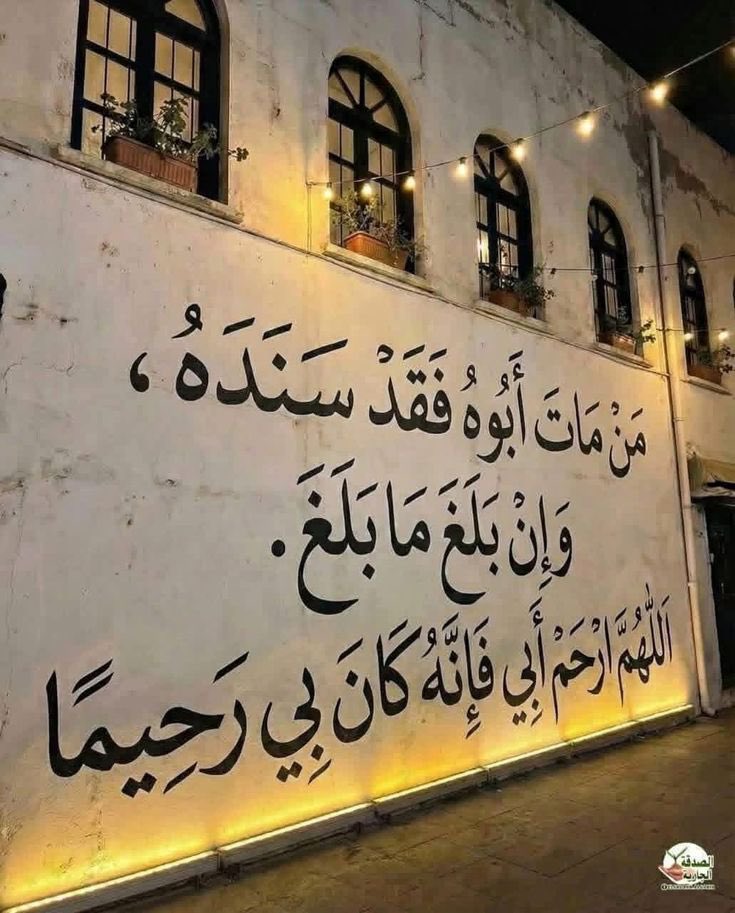 مَنْ مَاتَ أَبُوهُ فَقَدْ سَنَدَهُ ،
وَإِنْ بَلَغَ مَا بَلَغَ .
اَللّٰهُمَّ ارْحَمْ أَبِي فَإِنَّهُ كَانَ بِي رَحِيمًا
الصدقة
الجارية